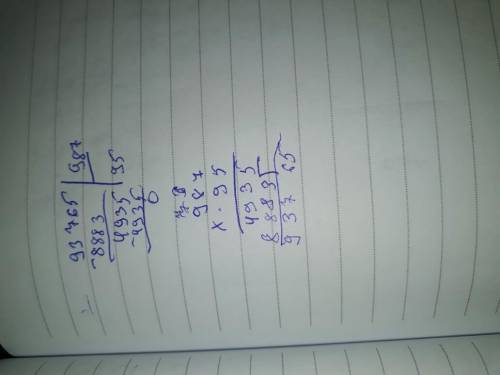 93765 | 987
-8883 | 95
4935
-4935
0
987
x 95
4935
8883
93765